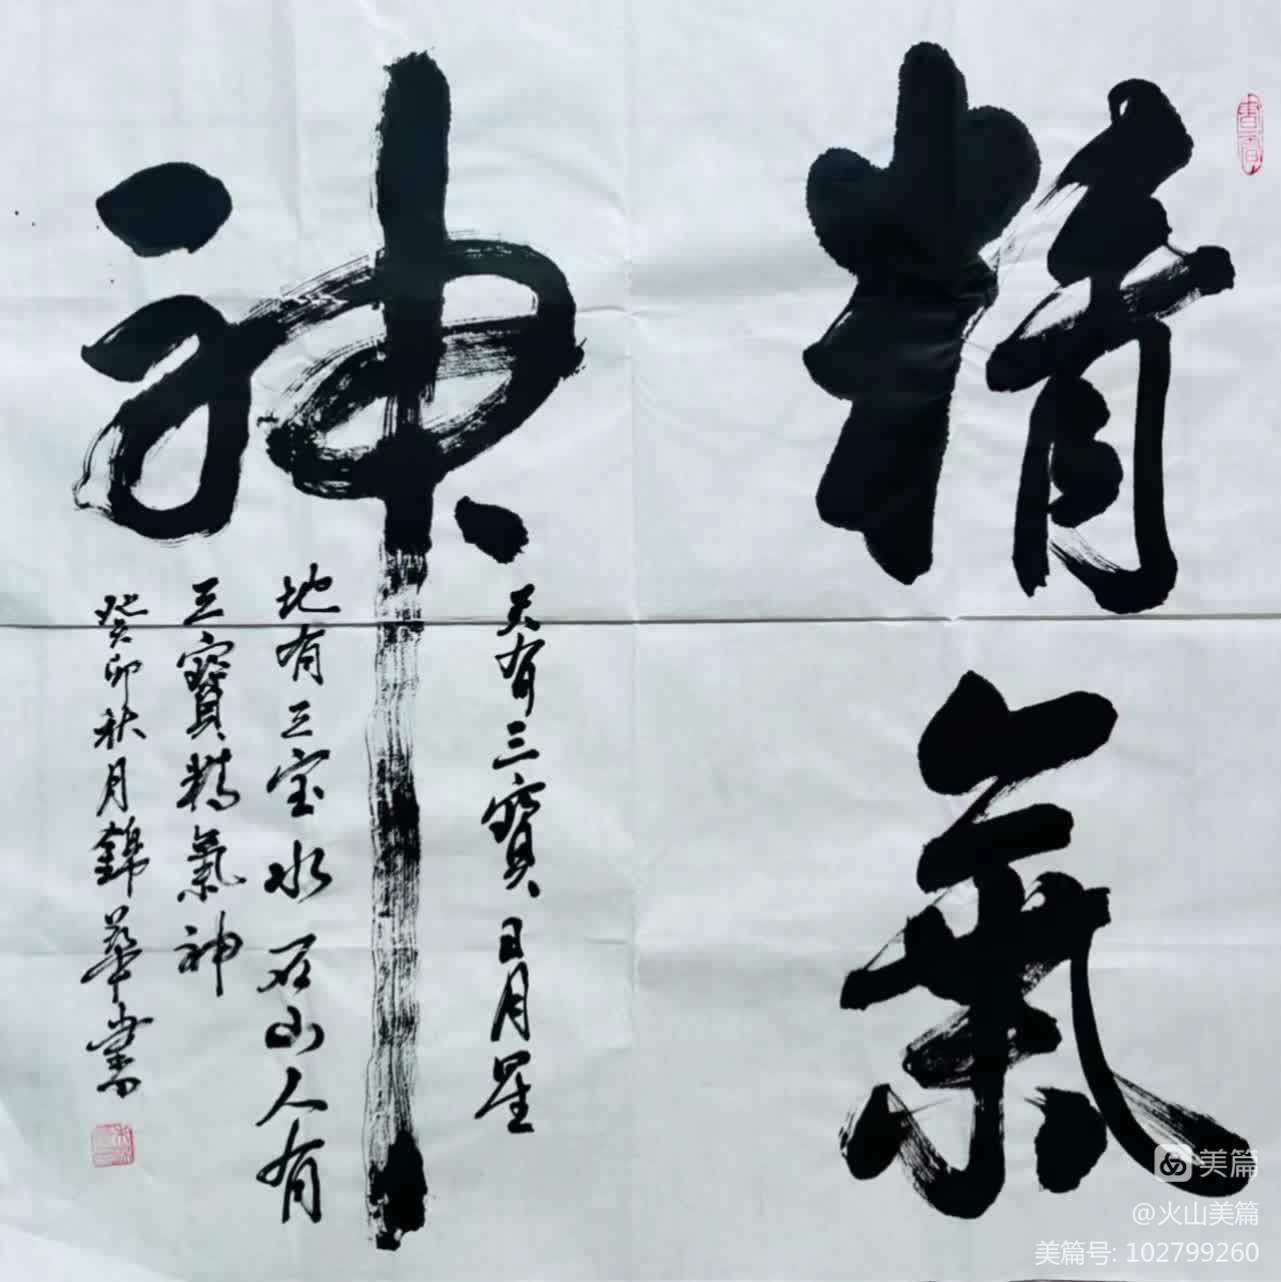 精氣
神
天有三寶日月星
地有三宝水石山人有
三寶精氣神
癸卯秋月錦華書
美篇
@火山美篇
美篇号: 102799260